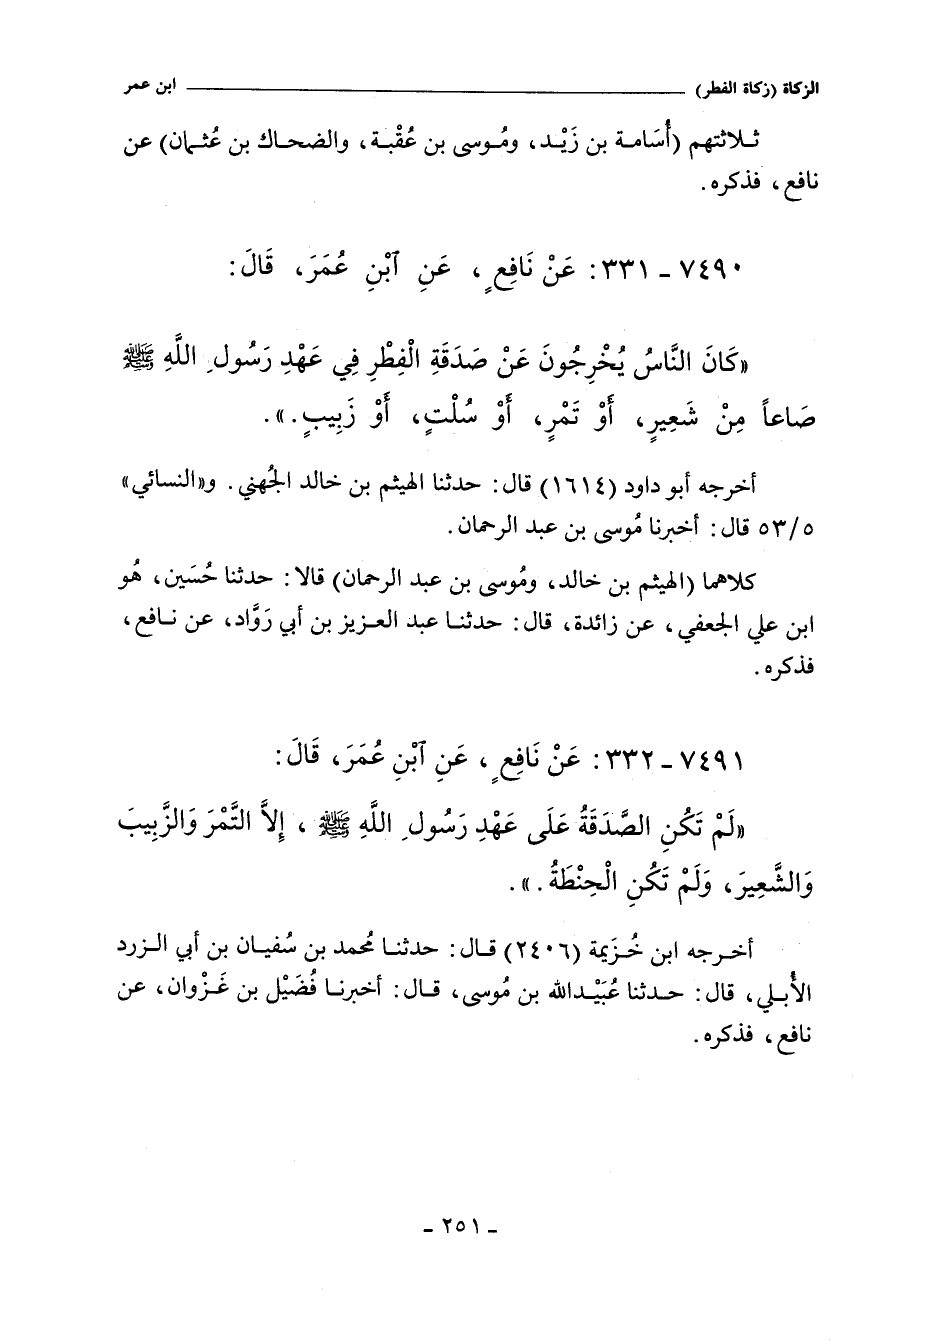 الزكاة (زكاة الفطر) ابن عمر
ثلاثتهم (أُسَامة بن زَيْد، ومُوسى بن عُقْبة، والضحاك بن عُثمان) عن
نافع، فذكره.
٧٤٩٠ ـ ٣٣١: عَنْ نَافِعٍ، عَنِ ٱبْنِ عُمَرَ، قَالَ:
«كَانَ النَّاسُ يُخْرِجُونَ عَنْ صَدَقَةِ الْفِطْرِ فِي عَهْدِ رَسُولِ اللَّهِ ﷺ
صَاعاً مِنْ شَعِيرٍ، أَوْ تَمْرٍ، أَوْ سُلْتٍ، أَوْ زَبِيبٍ.».
أخرجه أبو داود (١٦١٤) قال: حدثنا الهيثم بن خالد الجُهني. و«النسائي»
٥٣/٥ قال: أخبرنا مُوسى بن عبد الرحمان.
كلاهما (الهيثم بن خالد، ومُوسى بن عبد الرحمان) قالا: حدثنا حُسَين، هُو
ابن علي الجعفي، عن زائدة، قال: حدثنا عبد العزيز بن أبي رَوَّاد، عن نافع،
فذكره.
٧٤٩١ ـ ٣٣٢: عَنْ نَافِعٍ، عَنِ ٱبْنِ عُمَرَ، قَالَ:
«لَمْ تَكُنِ الصَّدَقَةُ عَلَى عَهْدِ رَسُولِ اللَّهِ ﷺ، إِلاَّ التَّمْرَ وَالزَّبِيبَ
وَالشَّعِيرَ، وَلَمْ تَكُنِ الْحِنْطَةُ.».
أخرجه ابن خُزَيمة (٢٤٠٦) قال: حدثنا مُحمد بن سُفيان بن أبي الزرد
الأُبلي، قال: حدثنا عُبَيْدالله بن مُوسى، قال: أخبرنا فُضَيْل بن غَزْوان، عن
نافع، فذكره.
ـ ٢٥١ ـ